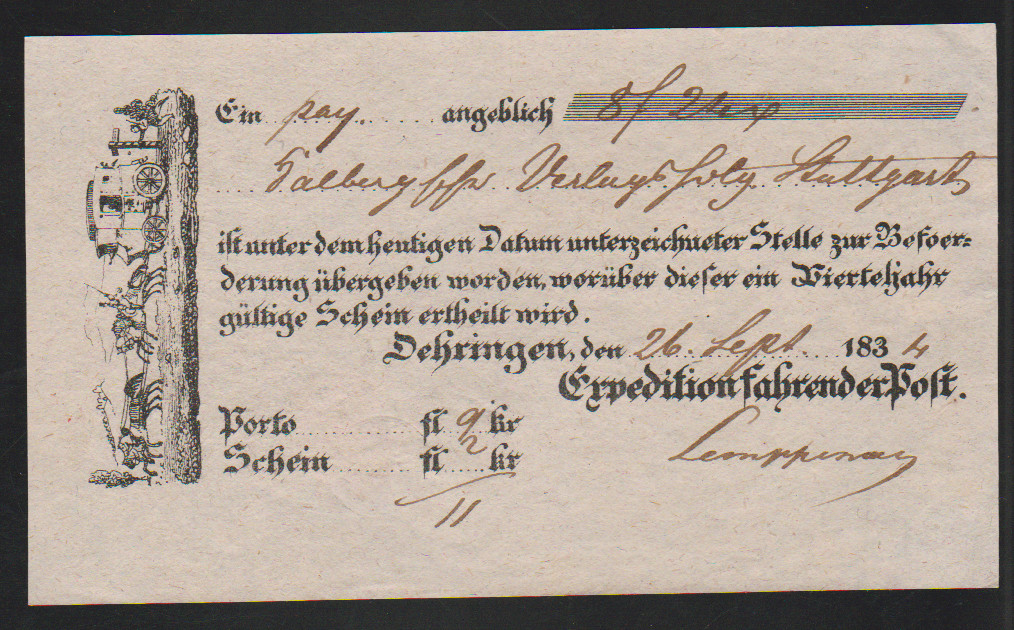 Ein pay. angeblich 8f 24 x
Verlags Stuttgart
ist unter dem heutigen Datum unterzeichneter Stelle zur Befoer=
derung übergeben worden, worüber dieser ein Vierteljahr
gültige Schein ertheilt wird.
Oehringen, den 26. Sept. 1834
Expedition fahrender Post.
Porto fl 9 kr
Schein fl 2 kr
11